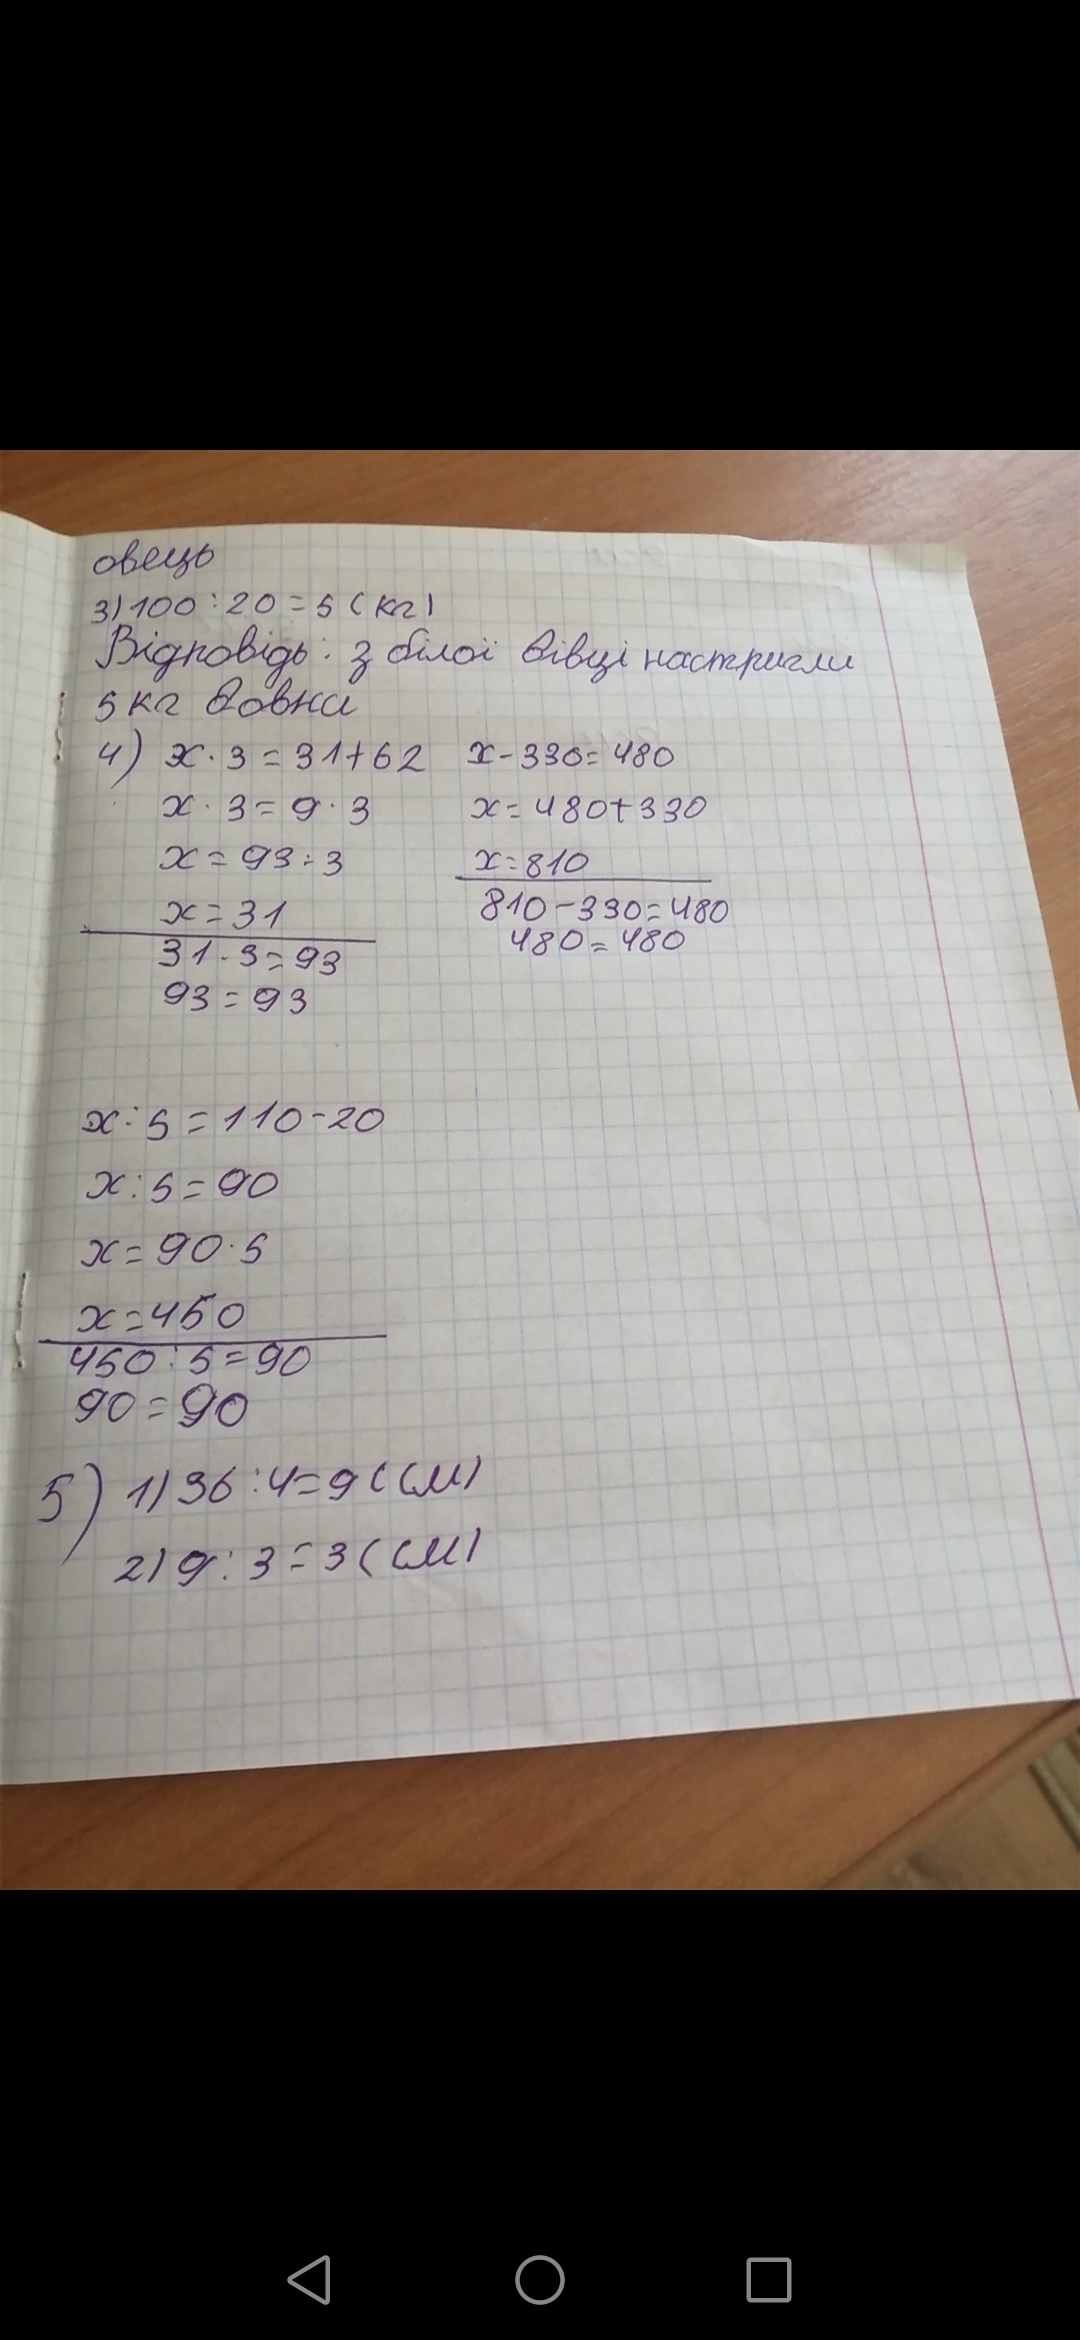 овець
3) 100 : 20 = 5 (кг)
Відповідь: з білої вівці настригли
5 кг вовни
4) x · 3 = 31 + 62
x · 3 = 9 · 3
x = 93 : 3
x = 31
31 · 3 = 93
93 = 93
x - 330 = 480
x = 480 + 330
x = 810
810 - 330 = 480
480 = 480
x : 5 = 110 - 20
x : 5 = 90
x = 90 · 5
x = 450
450 : 5 = 90
90 = 90
5) 1) 36 : 4 = 9 (см)
2) 9 : 3 = 3 (см)